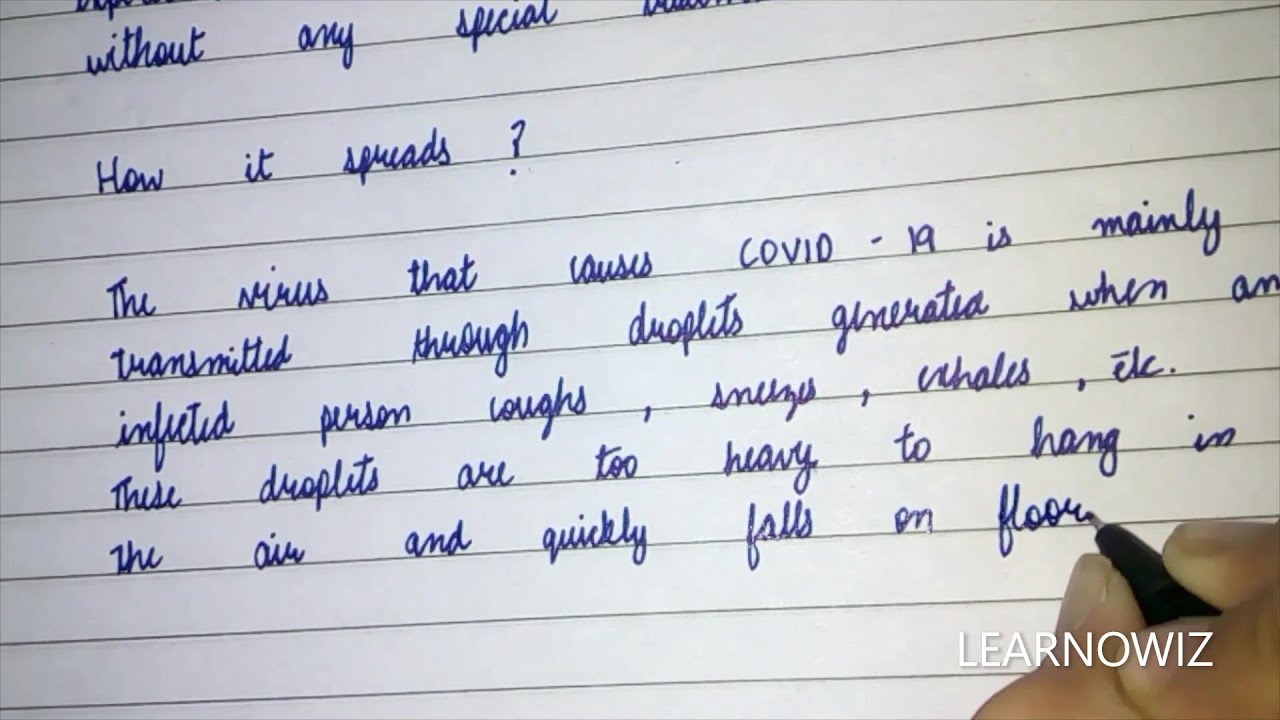 without any special
How it spreads ?
The virus that causes COVID - 19 is mainly
transmitted through droplets generated when an
infected person coughs , sneezes , exhales , etc.
These droplets are too heavy to hang in
the air and quickly falls on floor
LEARNOWIZ